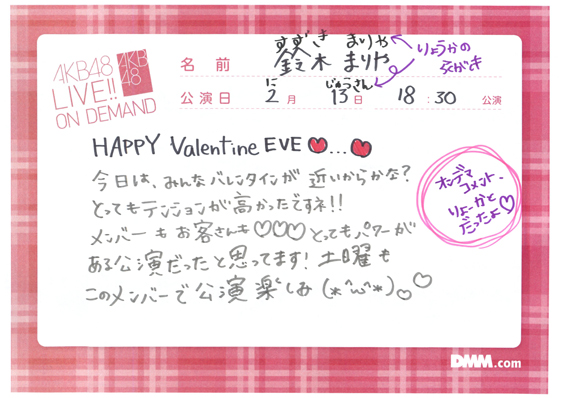 AKB48
LIVE!!
ON DEMAND
AKB
48
すずき まりや
名前 鈴木 まりや
りょうかの
ふりがき
に じゅうさん
公演日 2月 13日 18:30 公演
HAPPY Valentine EVE ♥...♥
今日は、みんなバレンタインが 近いからかな?
とってもテンションが高かったですネ!!
メンバーも お客さんも♡♡♡とってもパワーが
ある公演だったと思ってます! 土曜も
このメンバーで公演楽しみ(*^ω^*)♡♡
オンデマ
コメント、
りょーかと
だったよ♡
DMM.com